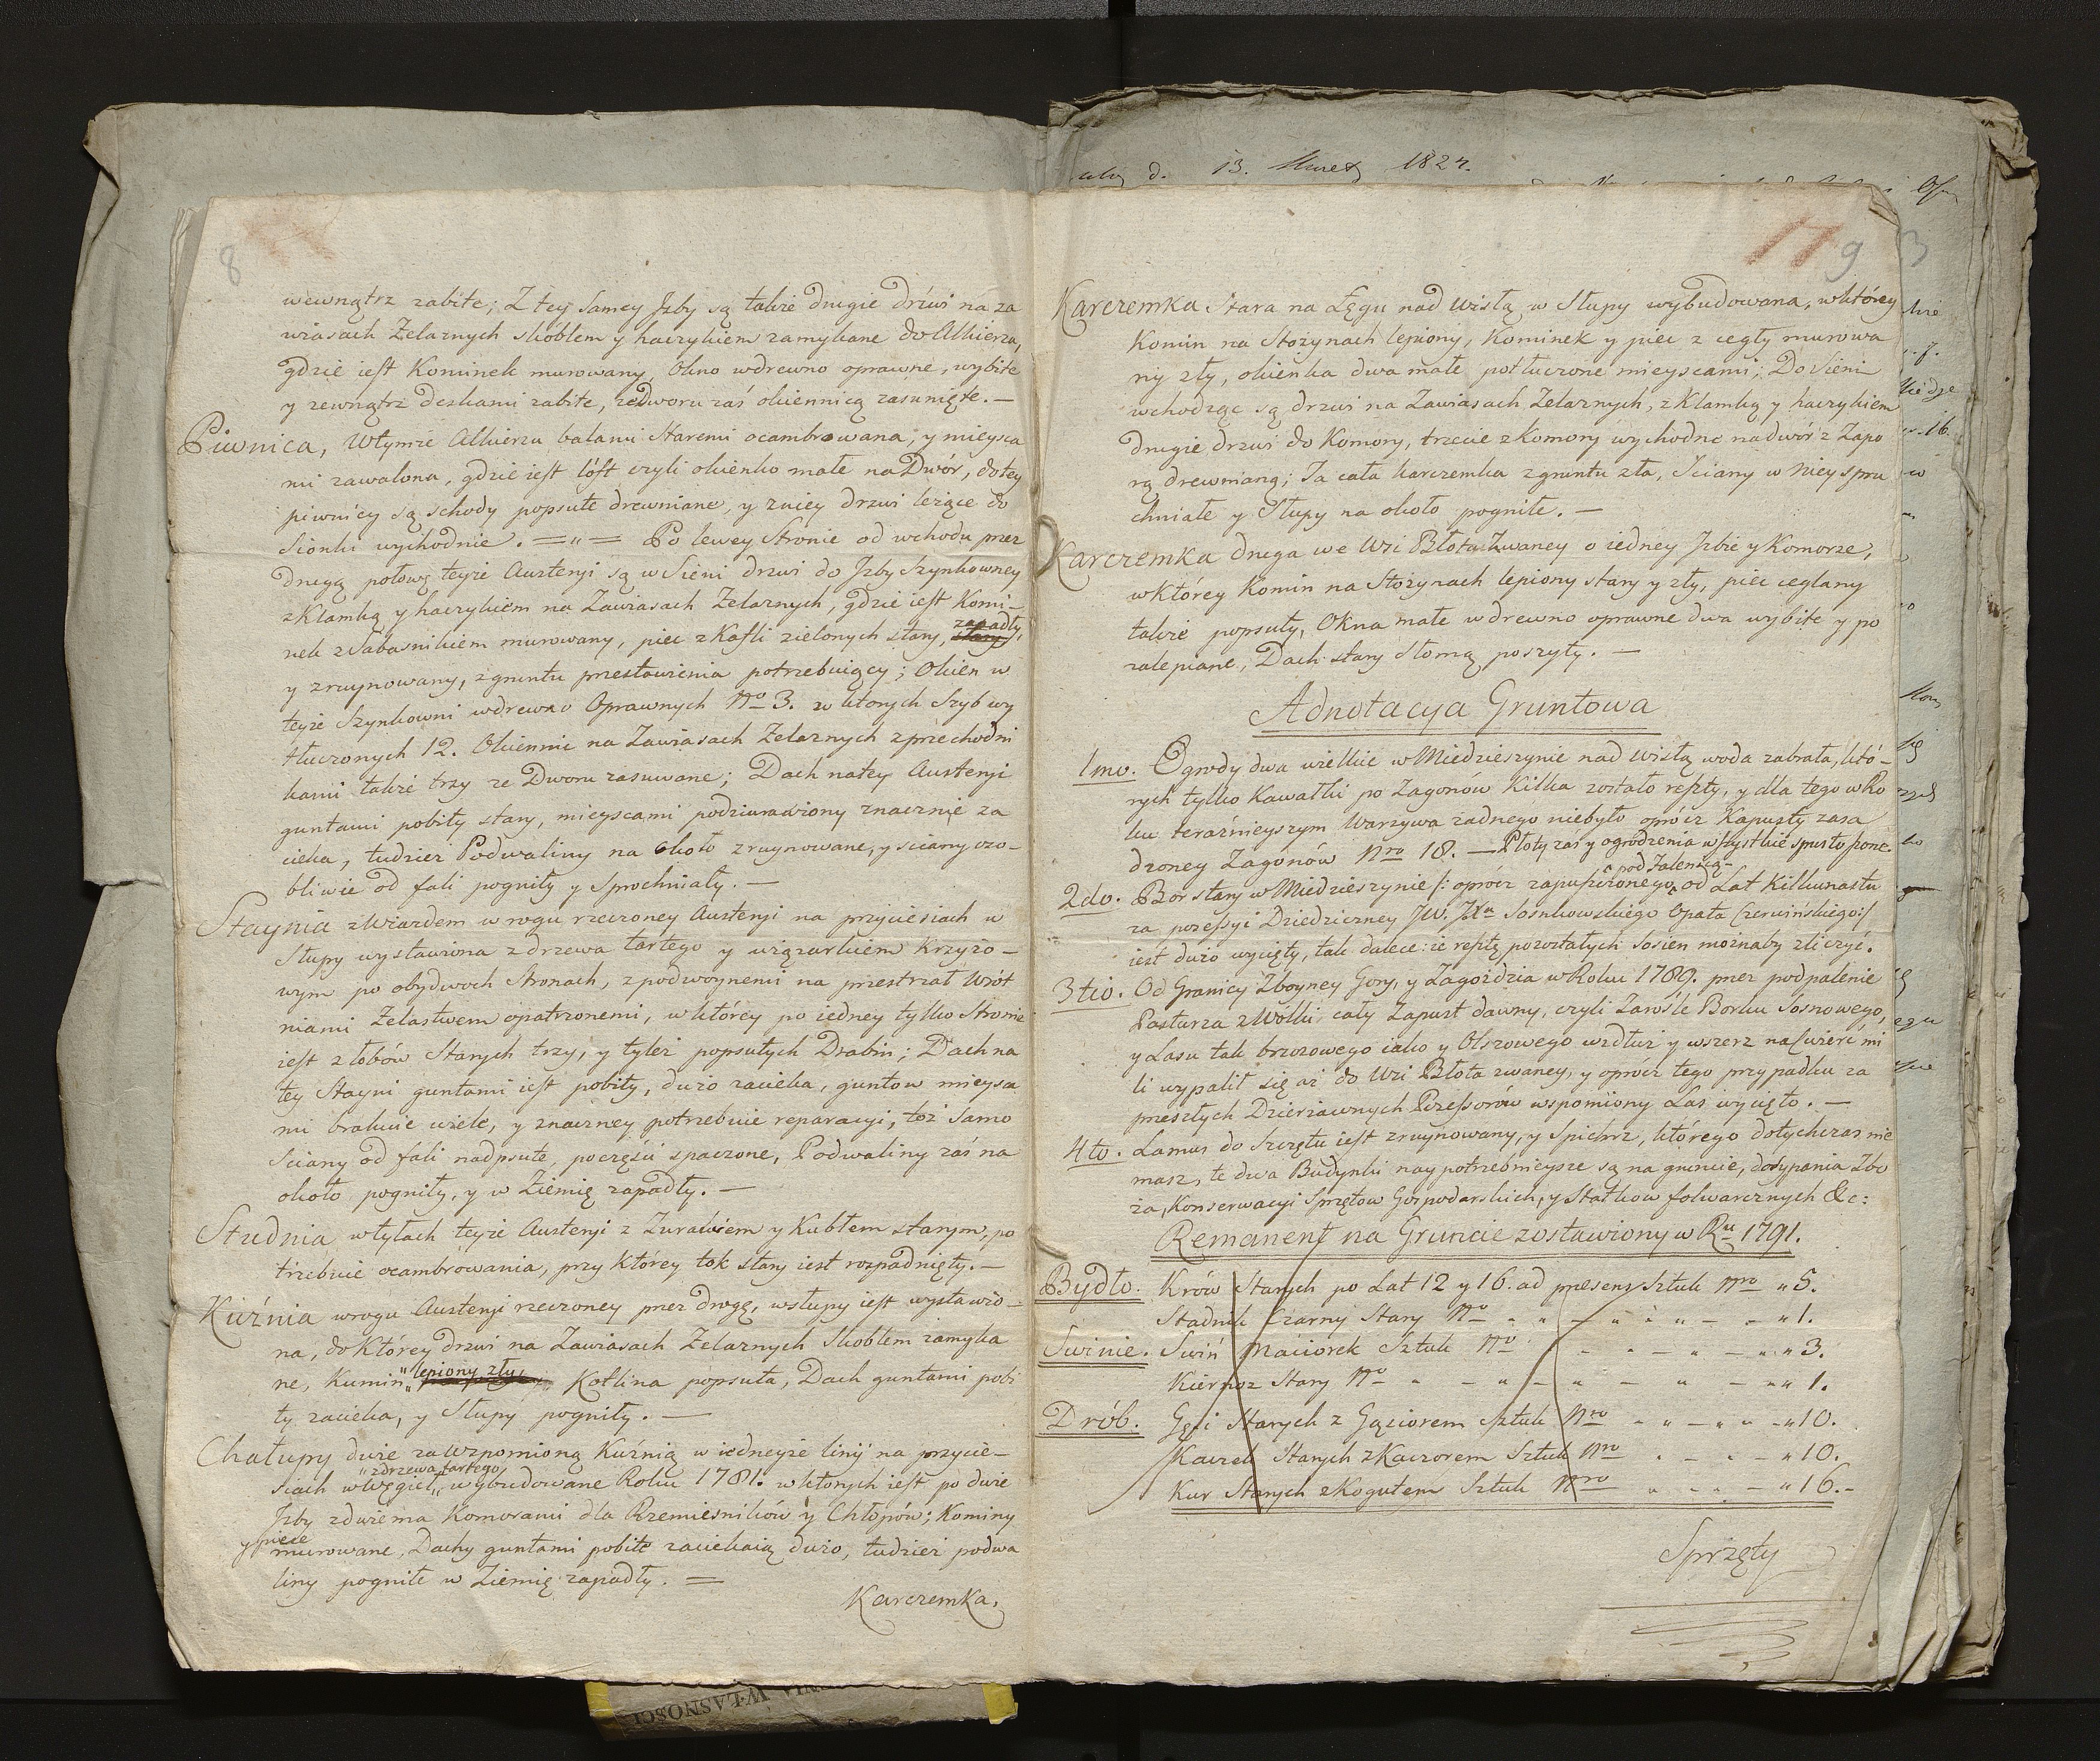 8
wewnątrz zabite; Z tey samey Jzby są także drugie drzwi na za
wiasach Zelaznych skoblem y haczykiem zamykane do Alkierza,
gdzie iest Kominek murowany, Okno wdrewno oprawne, wybite
y zewnątrz deskami zabite, zedworu zaś okiennicą zasunięte. —
Piwnica, Wtymże Alkierzu balami staremi ocambrowana, y mieysca
mi zawalona, gdzie iest lóft czyli okienko małe na Dwór, do tey
piwnicy są schody popsute drewniane, y zniey drzwi leżące do
Sionki wychodnie. =„= Po lewey stronie od wchodu przez
drugą połowę teyże Austeryi są w Sieni drzwi do Jzby Szynkowney
z Klamką y haczykiem na Zawiasach Zelaznych, gdzie iest Komi-
nek z Sabasnikiem murowany, piec z Kafli zielonych stary, zapadły,
y zruynowany, z gruntu przestawienia potrzebuiący; Okien w
teyże Szynkowni wdrewno Oprawnych No 3. w ktorych Szyb wy
tłuczonych 12. Okiennic na Zawiasach Zelaznych z przechodni
kami także trzy ze Dworu zasuwane; Dach na tey Austeryi
guntami pobity stary, mieyscami podziurawiony znacznie za
cieka, tudzież Podwaliny na około zruynowane, y sciany ozo-
bliwie od fali pogniły y Sprochniały. —
Staynia z Wiazdem w rogu rzeczoney Austeryi na przyciesiach w
Słupy wystawiona z drzewa tartego y wiązarkiem Krzyżo-
wym po obydwoch stronach, z podwoynemi na przestrzał Wrót
niami Zelastwem opatrzonemi, w którey po iedney tylko stronie
iest złobów starych trzy, y tyleż popsutych Drabin; Dach na
tey Stayni guntami iest pobity, dużo zacieka, guntow mieysca
mi brakuie wiele, y znaczney potrzebuie reparacyi, toż samo
Sciany od fali nadpsute, poczęści spaczone, Podwaliny zaś na
około pogniły, y w Ziemię zapadły. —
Studnia wtyłach teyże Austeryi z Zurawiem y Kubłem starym, po
trzebuie ocambrowania, przy Którey tok stary iest rozpadnięty. —
Kuźnia wrogu Austeryi rzeczoney przez drogę, wsłupy iest wystawio-
na, do Którey drzwi na Zawiasach Zelaznych Skoblem zamyka
ne, Kumin „lepiony zły„ Kotlina popsuta, Dach guntami pobi
ty zacieka, y Słupy pogniły. —
Chałupy dwie za Wzpomioną Kuźnią w iedneyże linij na przycie-
siach w Węgieł „z drzewa tartego„ wybudowane Roku 1781. w ktorych iest po dwie
Jzby zdwiema Komorami dla Rzemieśników y Chłopów; Kominy
y piece murowane, Dachy guntami pobite zaciekaią dużo, tudzież podwa
liny pogniłe w Ziemię zapadły. =
Karczemka.
13. 1824.
9
3
Karczemka stara na Łęgu nad Wisłą w Słupy wybudowana, w którey
Komin na Stożynach lepiony, Kominek y piec z cegły murowa
ny zły, okienka dwa małe potłuczone mieyscami; Do Sieni
wchodząc są drzwi na Zawiasach Zelaznych, z Klamką y haczykiem
drugie drzwi do Komory, trzecie z Komory wychodne na dwór z Zapo
rą drewnianą; Ta cała karczemka z gruntu zła, Sciany w niey spru
chniałe y Słupy na około pogniłe. —
Karczemka druga we Wsi Błota Zwaney o iedney Jzbie y Komorze,
w Którey Komin na Stożynach lepiony stary y zły, piec ceglany
także popsuty, Okna małe wdrewno oprawne dwa wybite y po
zalepiane, Dach stary słomą poszyty. —
Adnotacya Gruntowa
1mo. Ogrody dwa wielkie w Miedzieszynie nad Wisłą woda zabrała, któ-
rych tylko Kawałki po Zagonów Kilka zostało reszty, y dla tego w Ro
ku teraźnieyszym Warzywa żadnego niebyło oprócz Kapusty zasa
dzoney Zagonów Nro 18. — Płoty zaś y ogrodzenia wszystkie spustoszone.
2do. Bor stary w Miedzieszynie /: oprócz zapuszczonego pod Zalenicą od Lat Kilkunastu
za possessyi Dziedziczney JW. JXa Sosnkowskiego Opata Czerwińskiego :/
iest dużo wycięty, tak dalece: że resztę pozostałych Sosien możnaby zliczyć.
3tio. Od Granicy Zboyney Gory, y Zagoździa w Roku 1789. przez podpalenie
Pastuza z Wolki, cały Zapust dawny, czyli Zarośle Borku Sosnowego,
y Lasu tak brzozowego iako y Olszowego wzdłuż y wszerz na ćwierć mi
li wypalił się aż do Wsi Błota zwaney, y oprócz tego przypadku za
przeszłych Dzierżawnych Possessorów wspomiony Las wycięto. —
4to. Lamus do Szczętu iest zruynowany, y Spichrz, którego dotychczas nie
masz, te dwa Budynki naypotrzebnieysze są na gruncie, do sypania Zbo
ża, Konserwacyi Sprzętow Gospodarskich, y Statkow folwarcznych &c:
Remanent na Gruncie zostawiony w Ru 1791.
Bydło. Krów Starych po Lat 12 y 16. ad præsens Sztuk Nro „ 5.
Stadnik Czarny Stary No „ 1.
Swinie. Swiń Maciorek Sztuk No „ 3.
Kiernoz Stary No „ 1.
Drób. Gęsi Starych z Gąsiorem Sztuk Nro „ 10.
Kaczek Starych z Kaczorem Sztuk Nro „ 10.
Kur Starych z Kogutem Sztuk Nro „ 16. -
Sprzęty
WŁASNOŚCI